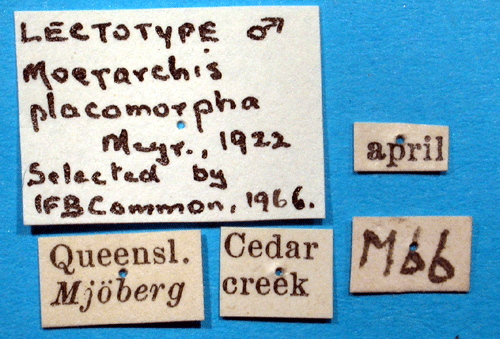 LECTOTYPE ♂
Moerarchis
placomorpha
Meyr., 1922
Selected by
IFBCommon, 1966.
april
Queensl.
Mjöberg
Cedar
creek
M66